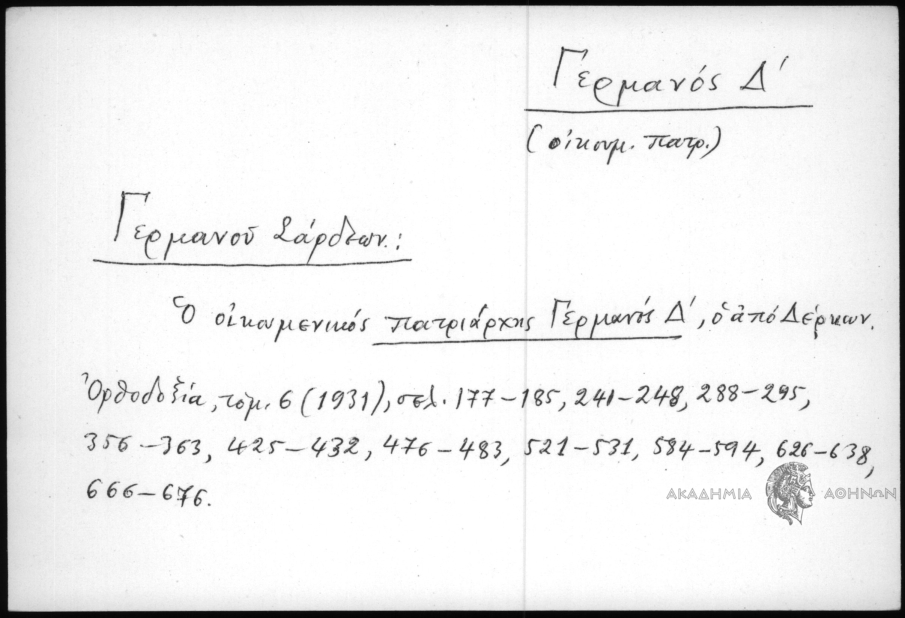 Γερμανός Δ'
(οἰκουμ. πατρ.)
Γερμανοῦ Σάρδεων.:
Ὁ οἰκουμενικός πατριάρχης Γερμανός Δ', ὁ ἀπό Δέρκων.
Ὀρθοδοξία, τόμ. 6 (1931), σελ. 177-185, 241-248, 288-295,
356-363, 425-432, 476-483, 521-531, 584-594, 626-638,
666-676.
ΑΚΑΔΗΜΙΑ ΑΘΗΝΩΝ